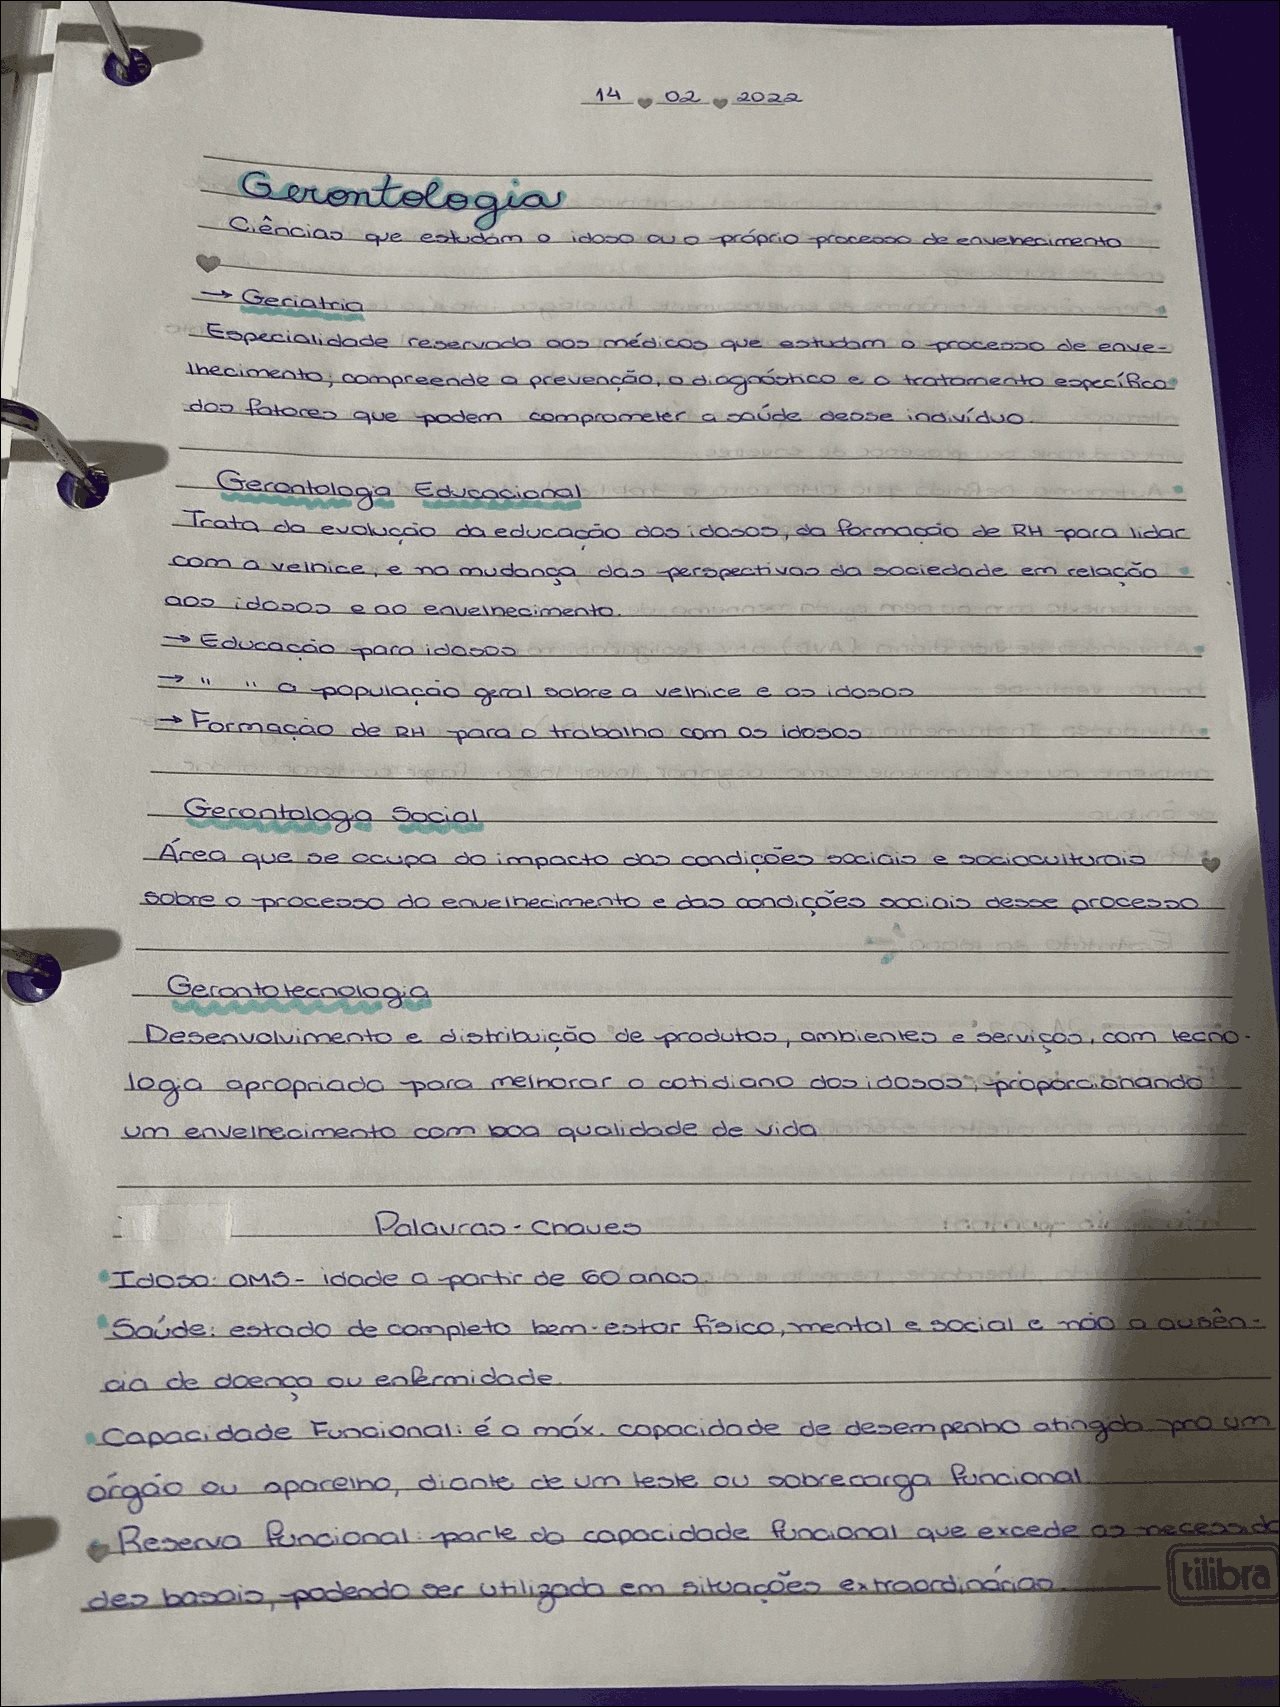 14 02 2022
Gerontologia
Ciências que estudam o idoso ou o próprio processo de envelhecimento
→ Geriatria
Especialidade reservada aos médicos que estudam o processo de enve-
lhecimento; compreende a prevenção, o diagnóstico e o tratamento específico
dos fatores que podem comprometer a saúde desse indivíduo.
Gerontologa Educacional
Trata da evolução da educação dos idosos, da formação de RH para lidar
com a velhice, e na mudança das perspectivas da sociedade em relação
aos idosos e ao envelhecimento.
→ Educação para idosos
→ " " a população geral sobre a velhice e os idosos
→ Formação de RH para o trabalho com os idosos
Gerontologa Social
Área que se ocupa do impacto das condições sociais e socioculturais
sobre o processo do envelhecimento e das condições sociais desse processo
Gerontotecnologia
Desenvolvimento e distribuição de produtos, ambientes e serviços, com tecno-
logia apropriada para melhorar o cotidiano dos idosos, proporcionando
um envelhecimento com boa qualidade de vida
Palavras-Chaves
Idoso: OMS - idade a partir de 60 anos.
Saúde: estado de completo bem-estar físico, mental e social e não a ausên-
cia de doença ou enfermidade.
Capacidade Funcional: é a máx. capacidade de desempenho atingda pro um
órgão ou aparelho, diante de um teste ou sobrecarga funcional.
Reserva funcional: parte da capacidade funcional que excede as necessida
des basais, podendo ser utilizada em situações extraordinárias.
tilibra